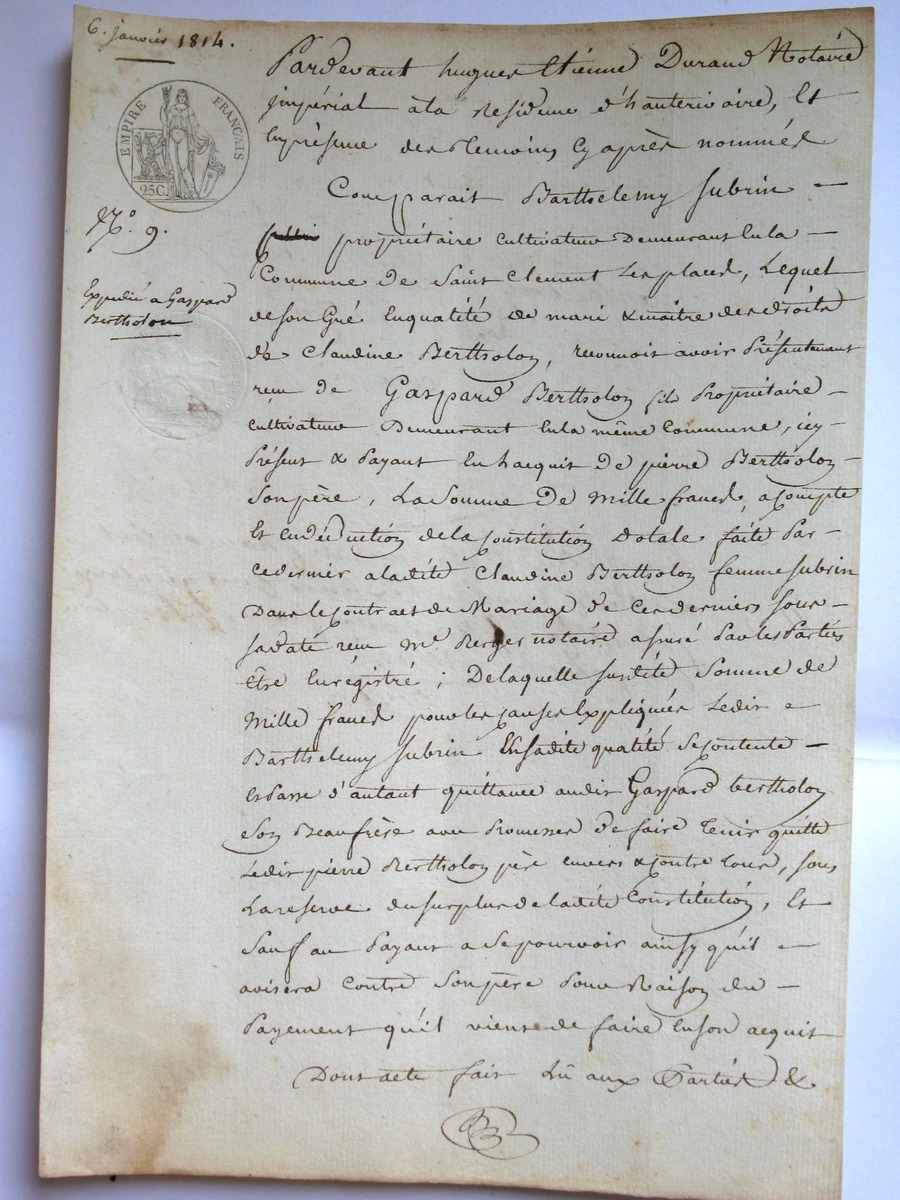 6. janvier 1814.
EMPIRE FRANÇAIS
25C.
N.o 9.
Expedié a Gaspard
Bertholon
Pardevant hugues Etienne Durand Notaire
impérial àla Residence d'hauterivoire, Et
Enprésence des temoins Cy après nommés
Comparait Barthelemy Subrin —
propriétaire cultivateur Demeurant Enla —
Commune De Saint Clement Les places, Lequel
deson Gré Enqualité de mari & maitre des droits
de Claudine Bertholon, reconnoit avoir Présentement
reçu de Gaspard Bertholon fils Propriétaire —
Cultivateur Demeurant Enla même Commune, icy —
Présent & Payant En Lacquit De pierre Bertholon —
Son père, La Somme De Mille francs, a Compte
Et endéduction dela Constitution dotale faite Par —
cedernier aladite Claudine Bertholon femme Subrin
Dans le Contract de Mariage de Ces derniers Sous —
Sadate reçu Me. Berger notaire assuré Par les Parties
Être Enrégistré ; De laquelle susdite Somme de
Mille francs pour les causes Expliquées Ledit —
Barthelemy Subrin En Sadite qualité Se Contente —
et Passe d'autant quittance audit Gaspard bertholon
Son Beaufrère avec Promesse de faire tenir quitte
Ledit pierre Bertholon père envers & Contre tous, sous
La reserve du surplus de ladite Constitution, Et
Sauf au Payant a Se pourvoir ainsy qu'il —
avisera Contre Son père Pour Raison du —
Payement qu'il vient de faire En son acquit
Dont acte fait Lû aux Parties &